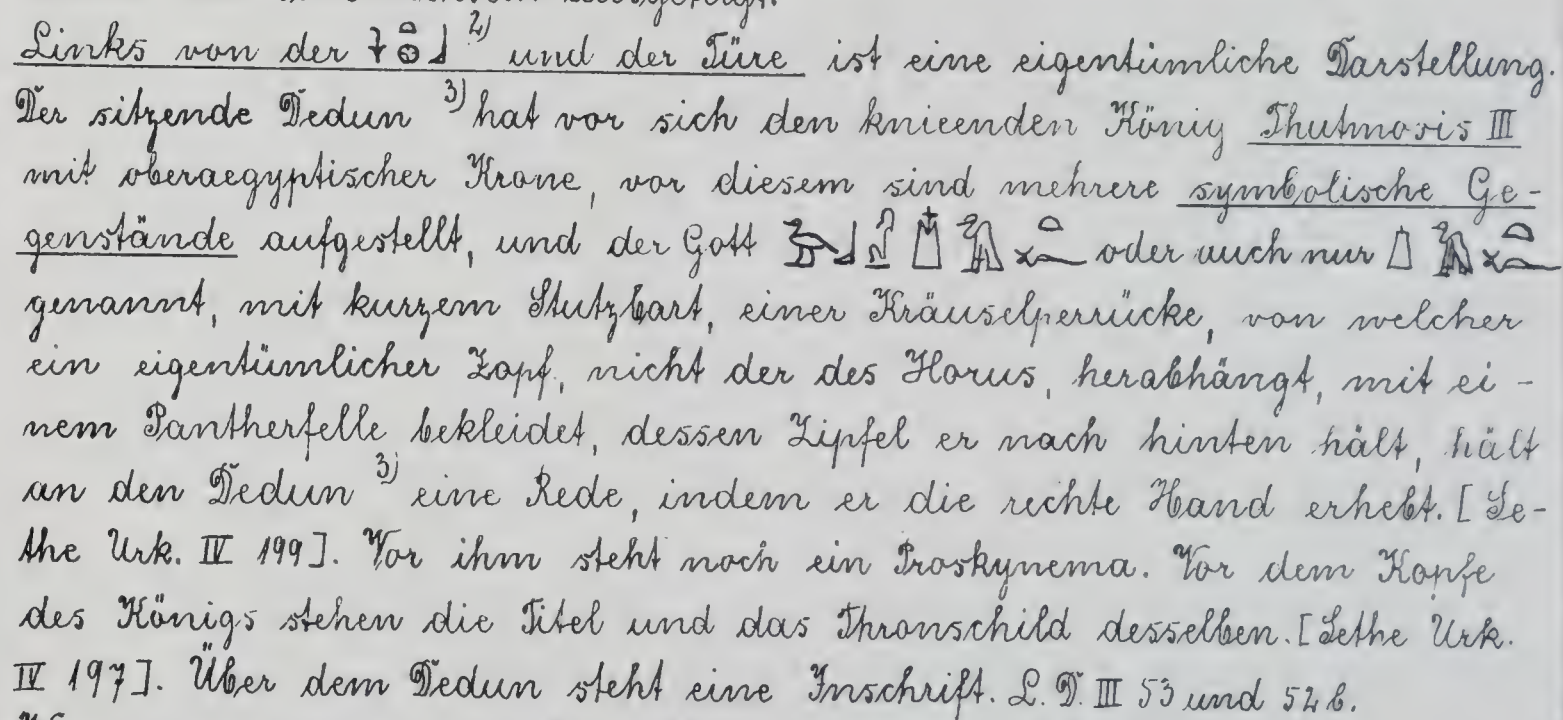 Links von der 2) und der Türe ist eine eigentümliche Darstellung.
Der sitzende Dedun 3) hat vor sich den knieenden König Thutmosis III
mit oberaegyptischer Krone, vor diesem sind mehrere symbolische Ge-
genstände aufgestellt, und der Gott oder auch nur
genannt, mit kurzem Stutzbart, einer Kräuselperrücke, von welcher
ein eigentümlicher Zopf, nicht der des Horus, herabhängt, mit ei-
nem Pantherfelle bekleidet, dessen Zipfel er nach hinten hält, hält
an den Dedun 3) eine Rede, indem er die rechte Hand erhebt. [Se-
the Urk. IV 199]. Vor ihm steht noch ein Proskynema. Vor dem Kopfe
des Königs stehen die Titel und das Thronschild desselben. [Sethe Urk.
IV 197]. Über dem Dedun steht eine Inschrift. L. D. III 53 und 52 b.